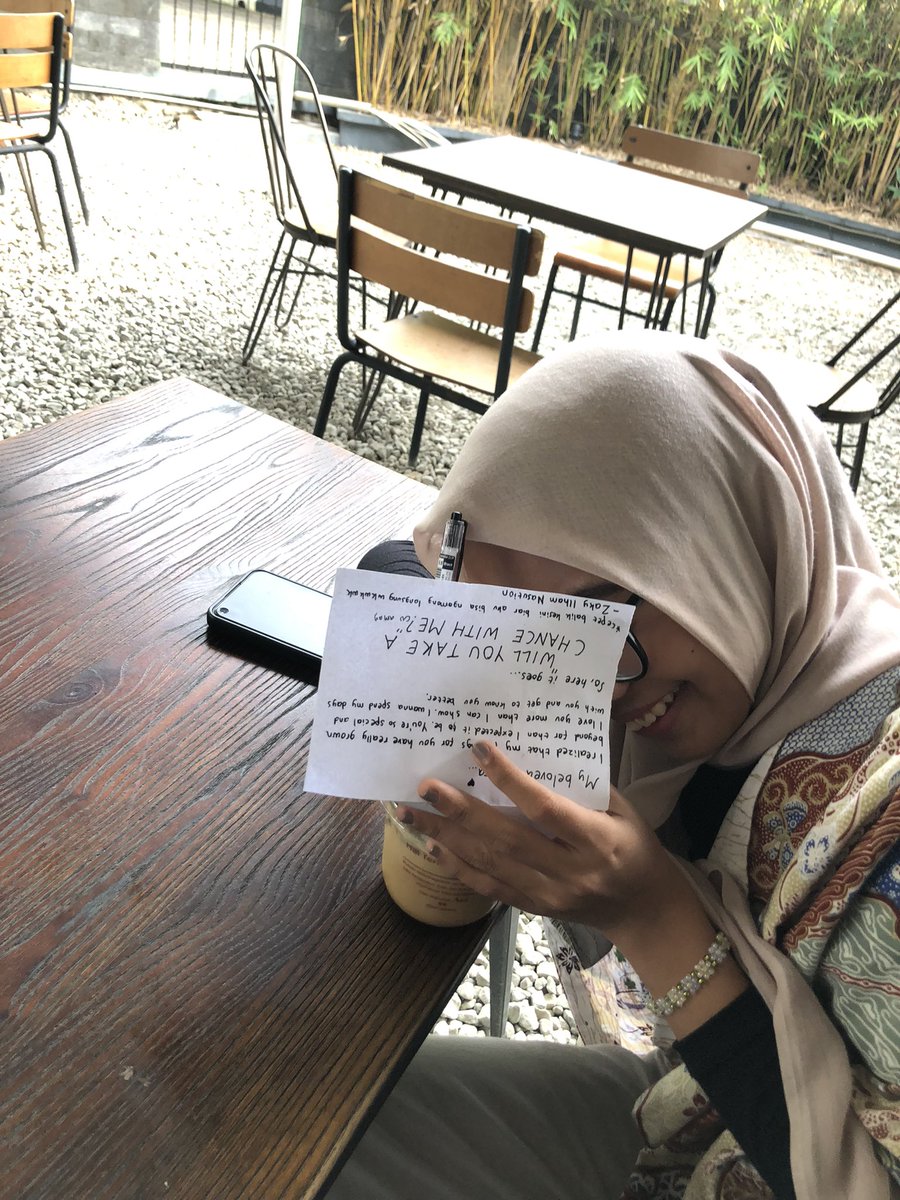 My beloved
I realized that my for you have really grown
beyond far than I expected it to be. You're so special and
I love you more than I can show. I wanna spend my days
with you and get to know you better.
So, here it goes...
"WILL YOU TAKE A
CHANCE WITH ME?"
- Zaky Ilham Nasution
*cepet balik kesini biar aku bisa ngomong langsung wkwkwk